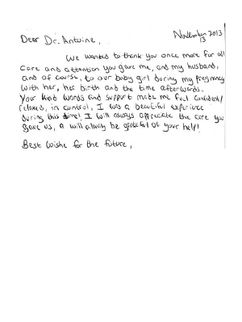 November 2013
13
Dear Dr. Antoine,
We wanted to thank you once more for all
care and attention you gave me, and my husband,
and of course, to our baby girl during my pregnancy
with her, her birth and the time afterwords.
Your kind words and support made me feel confident/
relaxed, in control, I was a beautiful experience
during this time! I will always appreciate the care you
gave us, & will always be grateful of your help!
Best wishe for the future,